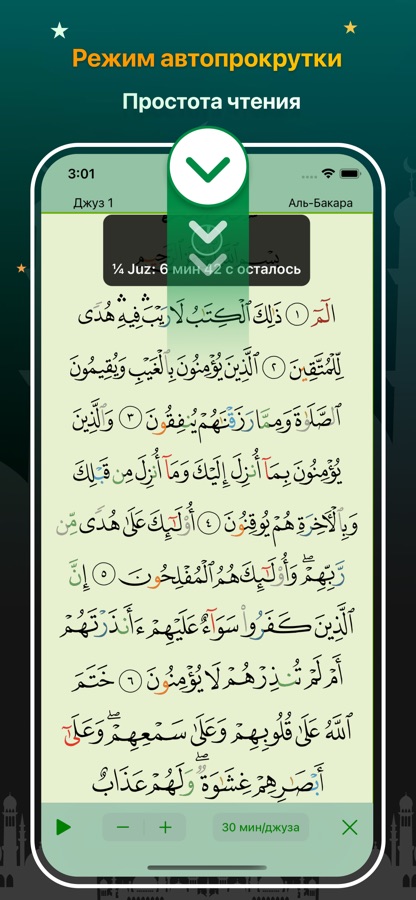 Режим автопрокрутки
Простота чтения
3:01
Джуз 1
Аль-Бакара
¼ Juz: 6 мин 42 с осталось
الٓمٓ ١ ذَٰلِكَ ٱلْكِتَٰبُ لَا رَيْبَ ۛ فِيهِ ۛ هُدًى
لِّلْمُتَّقِينَ ٢ ٱلَّذِينَ يُؤْمِنُونَ بِٱلْغَيْبِ وَيُقِيمُونَ
ٱلصَّلَوٰةَ وَمِمَّا رَزَقْنَٰهُمْ يُنفِقُونَ ٣ وَٱلَّذِينَ
يُؤْمِنُونَ بِمَآ أُنزِلَ إِلَيْكَ وَمَآ أُنزِلَ مِن قَبْلِكَ
وَبِٱلْءَاخِرَةِ هُمْ يُوقِنُونَ ٤ أُو۟لَٰٓئِكَ عَلَىٰ هُدًى مِّن
رَّبِّهِمْ ۖ وَأُو۟لَٰٓئِكَ هُمُ ٱلْمُفْلِحُونَ ٥ إِنَّ
ٱلَّذِينَ كَفَرُوا۟ سَوَآءٌ عَلَيْهِمْ ءَأَنذَرْتَهُمْ
أَمْ لَمْ تُنذِرْهُمْ لَا يُؤْمِنُونَ ٦ خَتَمَ
ٱللَّهُ عَلَىٰ قُلُوبِهِمْ وَعَلَىٰ سَمْعِهِمْ ۖ وَعَلَىٰٓ
أَبْصَٰرِهِمْ غِشَٰوَةٌ ۖ وَلَهُمْ عَذَابٌ
30 мин/джуза